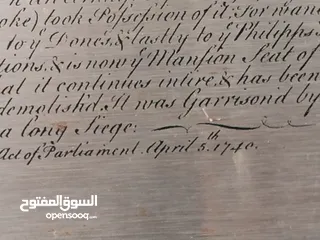 oke) took Possession of it, For man
to ye Dones, & lastly to ye Philipps's
tions, & is now ye Mansion Seat of
at it continues intire, & has been
demolish'd. It was Garrison'd by
a long Siege:
Act of Parliament. April 5.th 1740.
السوق المفتوح
opensooq.com